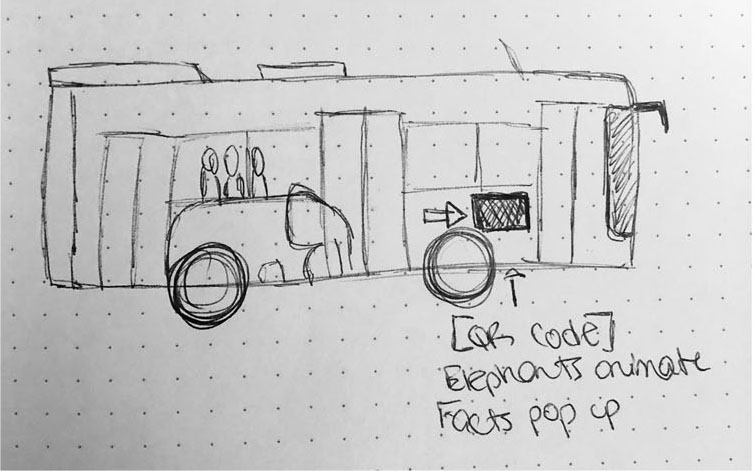 [QR code]
Elephants animate
Facts pop up